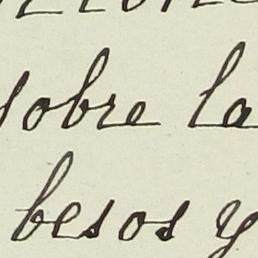 sobre la
besos y